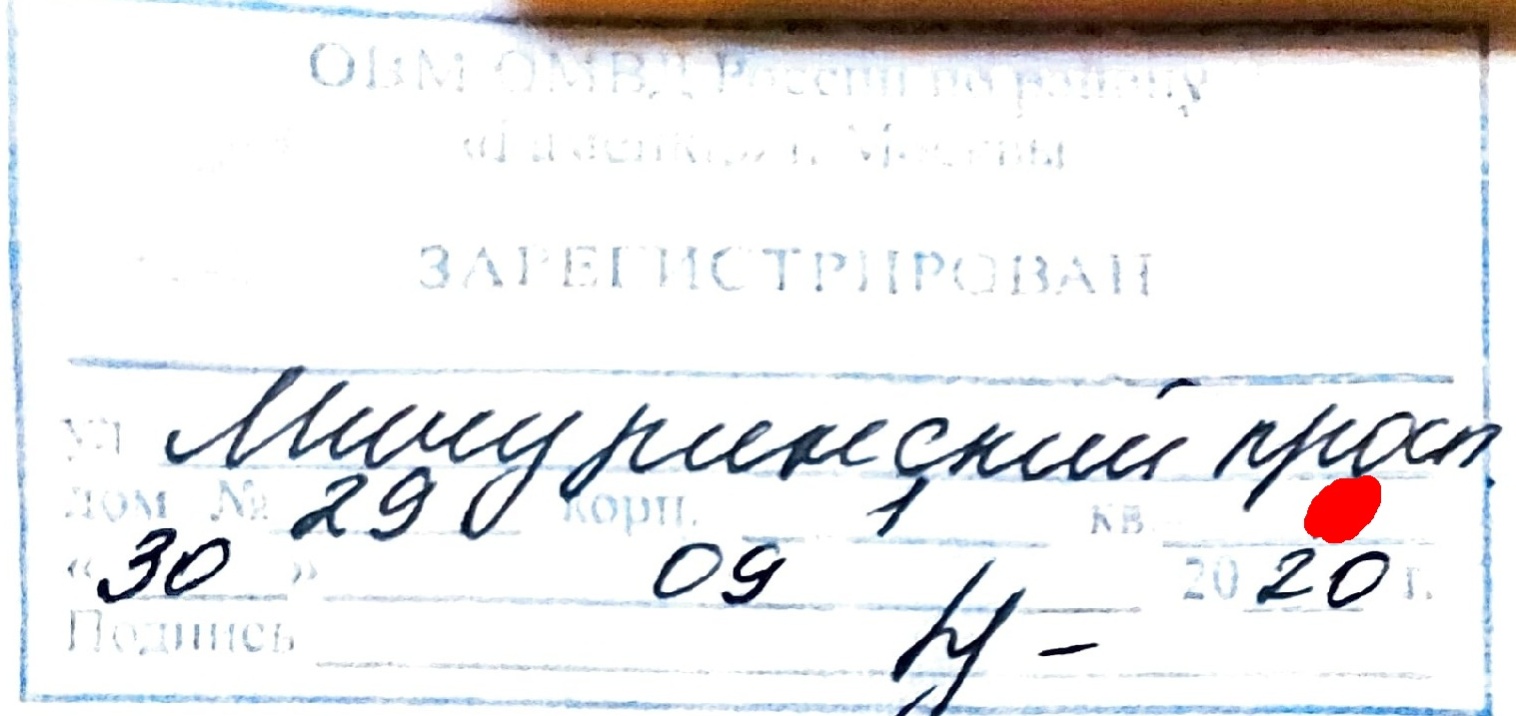 ОВМ ОМВД России по району
г. Москвы
ЗАРЕГИСТРИРОВАН
ул Мичуринский просп
дом № 29 корп. 1 кв.
«30» 09 2020 г.
Подпись